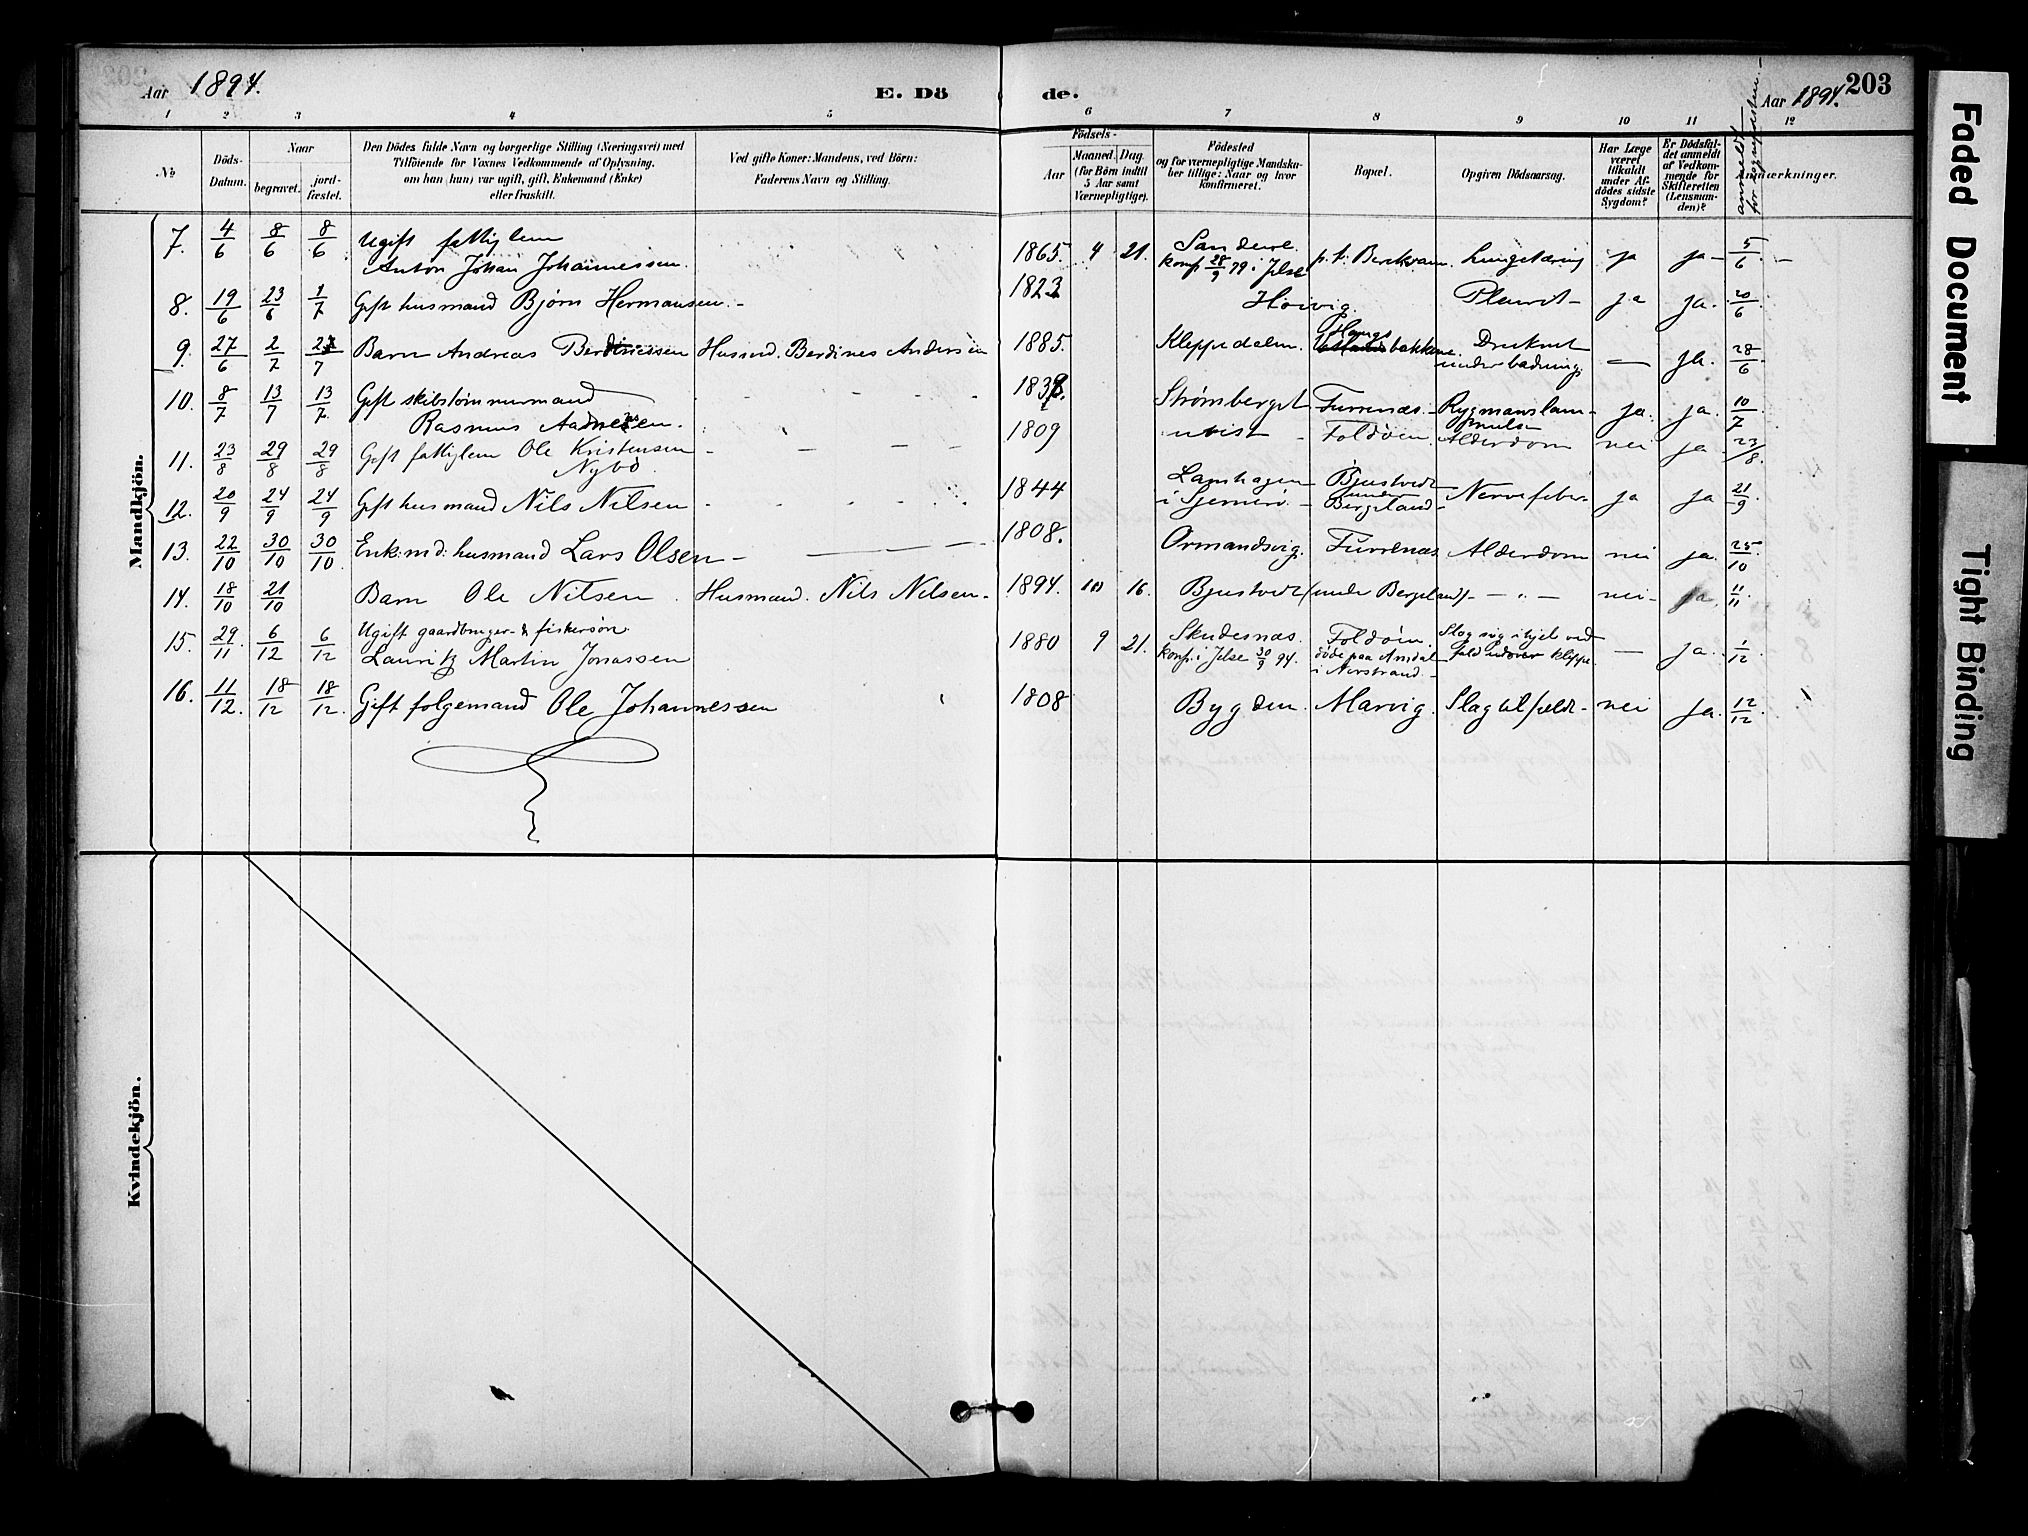 Aar 1894.
E. Döde.
Aar 1894.
203
1 2 3 4 5 6 7 8 9 10 11 12
No
Döds-Datum.
Naar
begravet.
jord-fæstet.
Den Dödes fulde Navn og borgerlige Stilling (Næringsvei) med
Tilföiende for Voxnes Vedkommende af Oplysning,
om han (hun) var ugift, gift, Enkemand (Enke)
eller fraskilt.
Ved gifte Koner: Mandens, ved Börn:
Faderens Navn og Stilling.
Födsels-
Aar
Maaned. Dag.
(for Börn indtil
5 Aar samt
Værnepligtige).
Födested
og for værnepligtige Mandskaber tillige: Naar og hvor
konfirmeret.
Bopæl.
Opgiven Dödsaarsag.
Har Læge
været
tilkaldt
under Afdödes sidste
Sygdom?
Er Dödsfaldet anmeldt
af Vedkommende for
Skifteretten
(Lensmanden)?
Anmærkninger.
Mandkjön.
7. 4/6 8/6 8/6 Ugift fattiglem
Anton Johan Johannessen. 1865. 4 21. Sandeid konf 28/9 79 i Jelse p.t. Berekvam. Lungetæring ja ja 5/6
8. 19/6 23/6 1/7 Gift husmand Bjørn Hermansen. 1823 Høivig. Pleurit ja ja. 20/6
9. 27/6 2/7 Barn Andreas Husmd. Berdines Andersen 1885. Kleppedalen. Druknet under badning. — ja. 28/6
10. 8/7 13/7 13/7 Gift skibstømmermand
Rasmus Strømberget Furrenæs. ja. ja. 10/7
11. 23/8 29/8 29/8 Gift fattiglem Ole Kristensen
Nybø. 1809 uvist Foldøen. Alderdom nei ja 23/8.
12. 20/9 24/9 24/9 Gift husmand Nils Nilsen 1844 Lamhagen i Sjernerø Bjustveit under Bergeland Nervefeber ja ja 21/9
13. 22/10 30/10 30/10 Enk:md: husmand Lars Olsen 1808. Ormandsvig. Furrenæs Alderdom nei ja. 25/10
14. 18/10 21/10 Barn Ole Nilsen. Husmand. Nils Nilsen 1894. 10 16. Bjustveit (under Bergeland) — " — nei ja. 11/11
15. 29/11 6/12 6/12 Ugift gaardbruger- & fiskersøn
Lauritz Martin Jonassen 1880 9 21. Skudesnæs. konf. i Jelse 30/9 94. Foldøen døde paa Amdal i Nerstrand Slog sig ihjel ved fald udover klippe. — ja. 1/12
16. 11/12. 18/12 18/12. Gift folgemand Ole Johannessen 1808 Bygden. Marvig. Slagtilfælde nei ja. 12/12
Kvindekjön.
Faded Document
Tight Binding